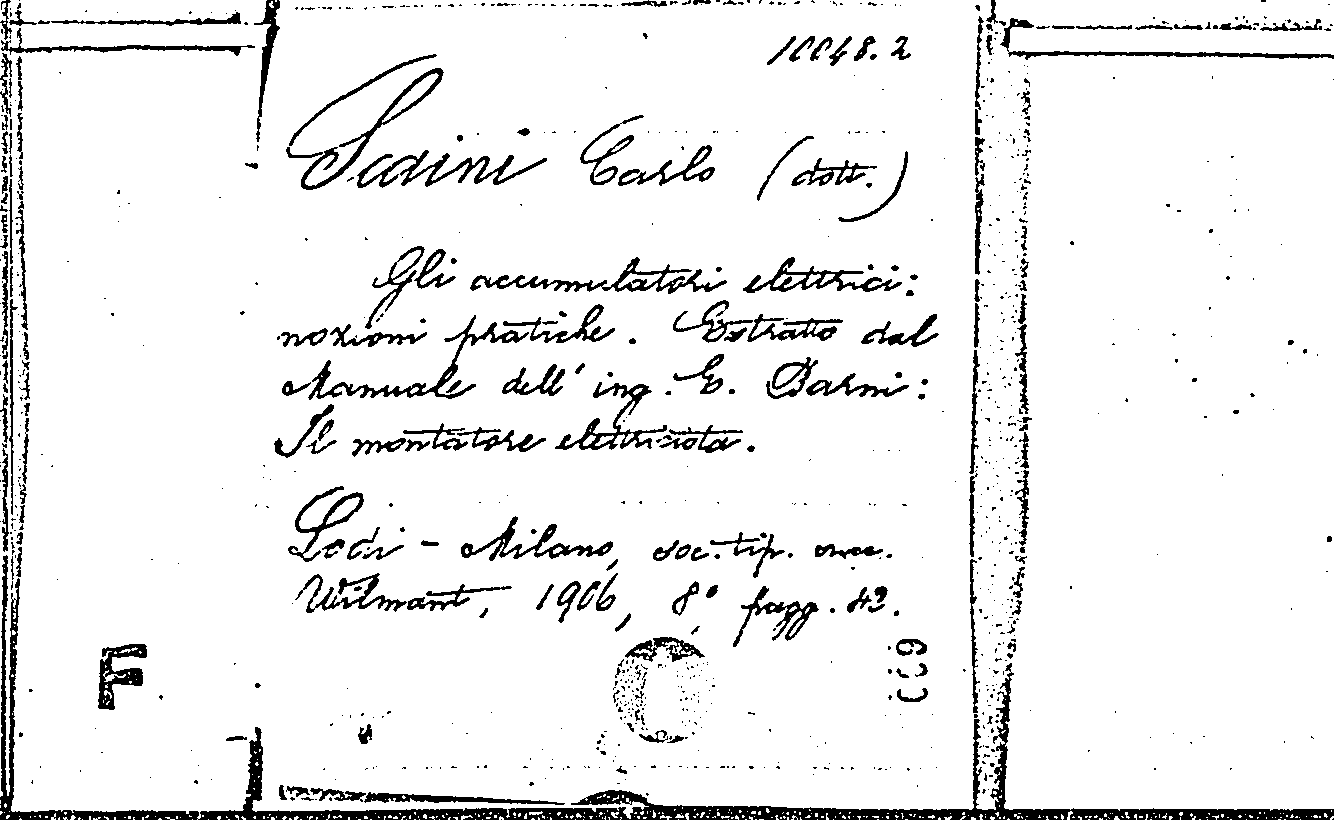 10048.2
Scaini Carlo (dott.)
Gli accumulatori elettrici:
nozioni pratiche. Estratto dal
Manuale dell' ing. E. Barni:
Il montatore elettricista.
Lodi - Milano, soc. tip. succ.
Wilmant, 1906, 8°, pagg. 43.
F